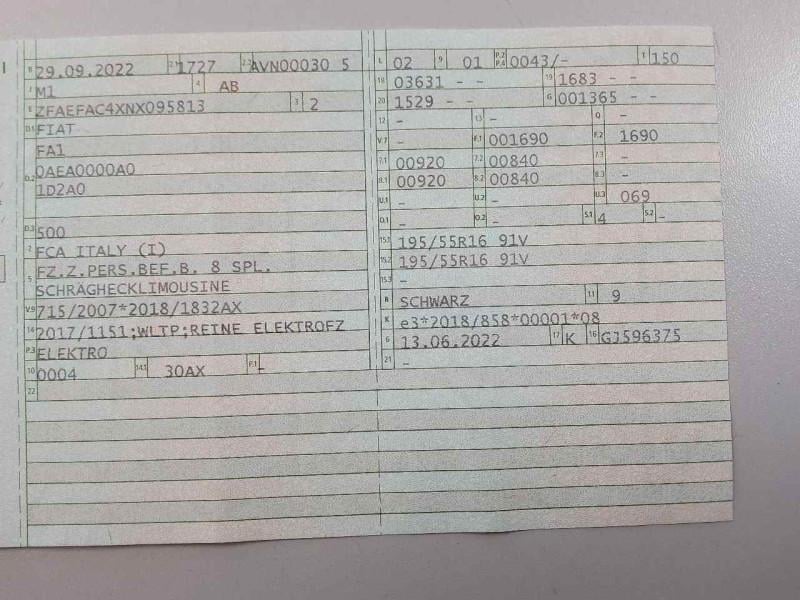 B 29.09.2022 2.1 1727 2.2 AVN00030 5
J M1 4 AB
E ZFAEFAC4XNX095813 3 2
D.1 FIAT
D.2 FA1
0AEA0000A0
1D2A0
D.3 500
2 FCA ITALY (I)
5 FZ.Z.PERS.BEF.B. 8 SPL.
SCHRÄGHECKLIMOUSINE
V.9 715/2007*2018/1832AX
14 2017/1151;WLTP;REINE ELEKTROFZ
P.3 ELEKTRO
10 0004 14.1 30AX P.1 -
22
L 02 9 01 P.2 P.4 0043/- T 150
18 03631 - - 19 1683 - -
20 1529 - - G 001365 - -
12 - 13 - Q -
V.7 - F.1 001690 F.2 1690
7.1 00920 7.2 00840 7.3 -
8.1 00920 8.2 00840 8.3 -
U.1 - U.2 - U.3 069
O.1 - O.2 - S.1 4 S.2 -
15.1 195/55R16 91V
15.2 195/55R16 91V
15.3 -
R SCHWARZ 11 9
K e3*2018/858*00001*08
6 13.06.2022 17 K 16 GJ596375
21 -